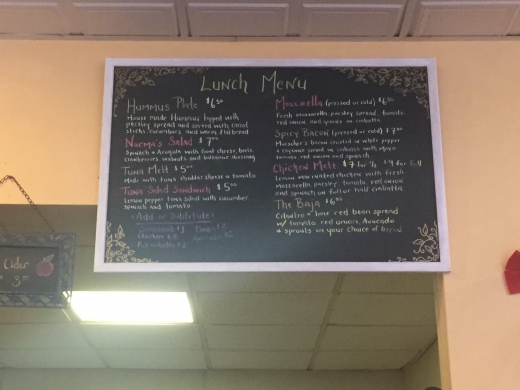 Lunch Menu
Hummus Plate $6.50
House made Hummus topped with
parsley spread and served with carrot
sticks, cucumbers and warm flatbread
Norma's Salad $7.00
Spinach + Arugula with feta cheese,
cranberries walnuts and balsamic dressing
Tuna Melt $5.00
Made with tuna, cheddar cheese + tomato
Tuna Salad Sandwich $5.00
Lemon pepper tuna salad with cucumber
spinach and tomato
Add or Substitute
Chicken
Avocado
Mozzarella (pressed or cold) $6.50
Fresh mozzarella, parsley spread, tomato
red onion and on ciabatta
Spicy Bacon (pressed or cold) $7.00
bacon crusted in white pepper
+ cayenne served on ciabatta with
tomato red onion and spinach
Chicken Melt $7 for 1/2 $9 for full
Lemon marinated chicken with Fresh
Mozzarella, parsley, tomato red onion
and spinach on full or half ciabatta
The Baja $6.50
Cilantro + lime red bean spread
w/ tomato, red onion, Avocado
+ sprouts on your choice of bread
Cider